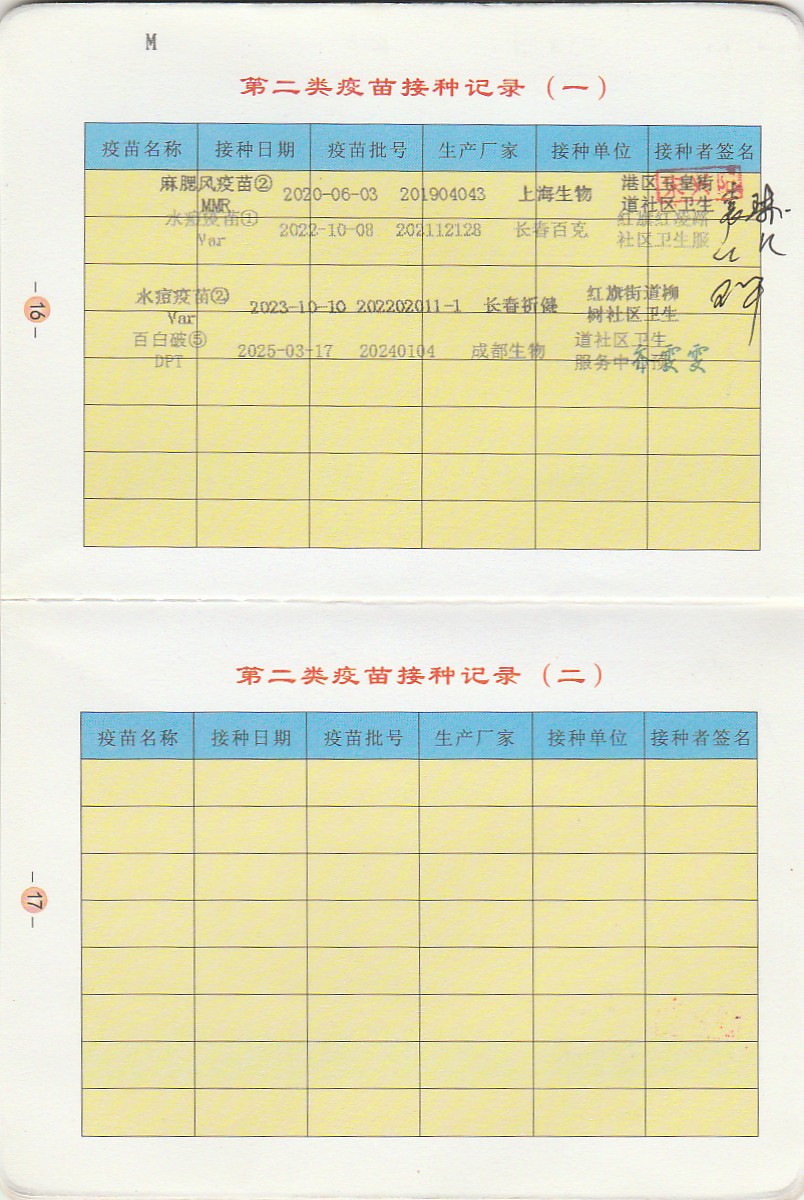 M
第二类疫苗接种记录（一）
疫苗名称 接种日期 疫苗批号 生产厂家 接种单位 接种者签名
麻腮风疫苗② 港区玉皇街
MMR 2020-06-03 201904043 上海生物 道社区卫生
水痘疫苗① 红旗红凌路
Var 2022-10-08 202112128 长春百克 社区卫生服
水痘疫苗② 红旗街道柳
Var 2023-10-10 202202011-1 长春祈健 树社区卫生
百白破⑤ 道社区卫生
DPT 2025-03-17 20240104 成都生物 服务中 雯雯
- 16 -
第二类疫苗接种记录（二）
疫苗名称 接种日期 疫苗批号 生产厂家 接种单位 接种者签名
- 17 -